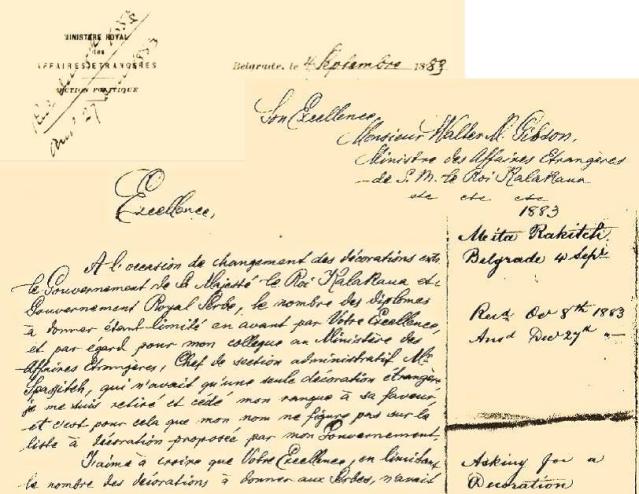 MINISTÈRE ROYAL
des
AFFAIRES ETRANGÈRES
SECTION POLITIQUE
Belgrade, le 4 Septembre 1883
Son Excellence
Monsieur Walter M. Gibson,
Ministre des Affaires Etrangères
de S. M. le Roi Kalakaua
etc etc etc
Excellence,
A l'occasion de changement des décorations entre
le Gouvernement de Sa Majesté le Roi Kalakaua et
Gouvernement Royal Serbe, le nombre des diplomes
à donner étant limité en avant par Votre Excellence,
et par égard pour mon collègue au Ministère des
Affaires Etrangères, Chef de section administratif Mr
Spassitch, qui n'avait qu'une seule décoration étrangère
je me suis retiré et cédé mon rangue à sa faveur,
et c'est pour cela que mon nom ne figure pas sur la
liste à décoration proposée par mon Gouvernement.
J'aime à croire que Votre Excellence, en limitant
le nombre des décorations à donner aux Serbes, n'avait
1883
Meita Rakitch
Belgrade 4 Sept.
Rec'd Oct 8th 1883
Ansd Dec 27th "
Asking for a
Decoration